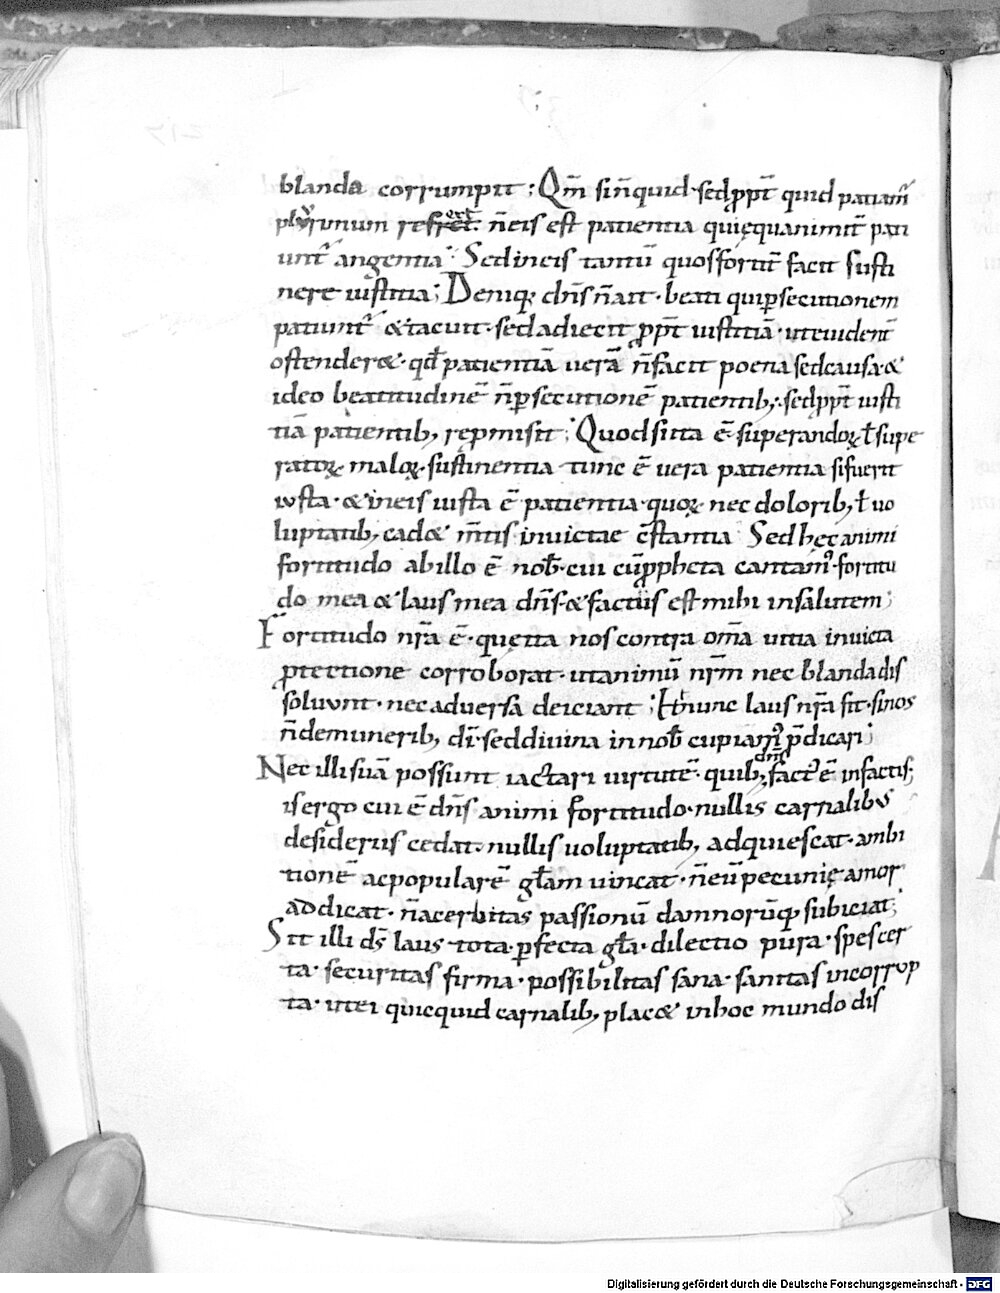 blanda corrumpit; Qm̄ sin̄quid· sed ꝓpt̄ quid patiam̄
plurimum refert. n̄eis est patientia qui ęquanimit̄ pati
unt̄ angentia· Sed in eis tantū quos fortit̄ facit susti
nere iustitia; Deniq; dn̄s n̄ ait· beati qui ꝑsecutionem
patiunt̄ & tacuit· sed adiecit ꝓpt̄ iustitiā· ut euident̄
ostender&· qđ patientiā uerā n̄ facit poena sed causa· &
ideo beatitudinē n̄ ꝑsecutionē patientib;· sed ꝓpt̄ iusti
tiā patientib; repromisit; Quod si ita ē· superandoꝝ ł supe
ratoꝝ maloꝝ· sustinentia tunc ē uera patientia si fuerit
iusta· & in eis iusta ē patientia· quoꝝ nec dolorib; ł uo
luptatib; cad& m̄tis inuictae c̄stantia Sed hęc animi
fortitudo ab illo ē nob̄· cui cū ꝓpheta cantam᷒· fortitu
do mea & laus mea dn̄s· & factus est mihi in salutem;
Fortitudo nr̄a ē· quę ita nos contra om̄a uitia inuicta
ꝓtectione corroborat· ut animū nr̄m nec blanda dis
soluunt· nec aduersa deiciant; Et nunc laus nr̄a sit· si nos
n̄ de munerib; dī· sed diuina in nob̄ cupiam᷒ p̄dicari;
Nec illi suā possunt iactari uirtutē· quib; dn̄s fact᷒ ē in factis;
is ergo cui ē dn̄s animi fortitudo· nullis carnalibus
desideriis cedat· nullis uoluptatib; adquiescat· ambi
tionē ac popularē głam uincat· n̄ eū pecunię amor
addicat· n̄ acerbitas passionū damnorūq; subiciat;
Sit illi ds̄ laus tota· ꝑfecta gła· dilectio pura· spes cer
ta· securitas firma· possibilitas sana· sanitas incorrup
ta· ut ei quicquid carnalib; plac& in hoc mundo dis
Digitalisierung gefördert durch die Deutsche Forschungsgemeinschaft - DFG